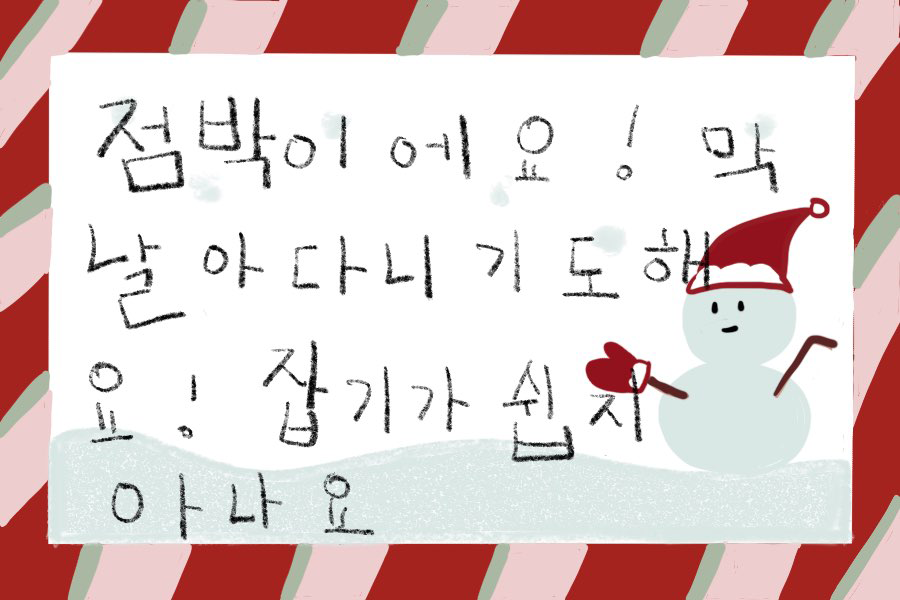 점박이에요! 막
날아다니기도해
요! 잡기가 쉽지
아나요